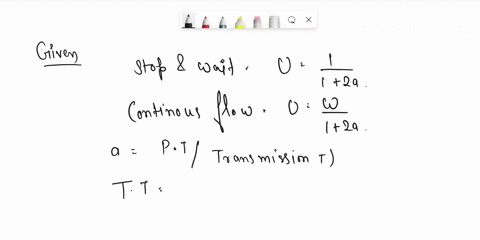 Given
Stop & wait. U = 1/1+2a.
Continous flow. U = w/1+2a.
a = P.T/ Transmission T)
T.T =